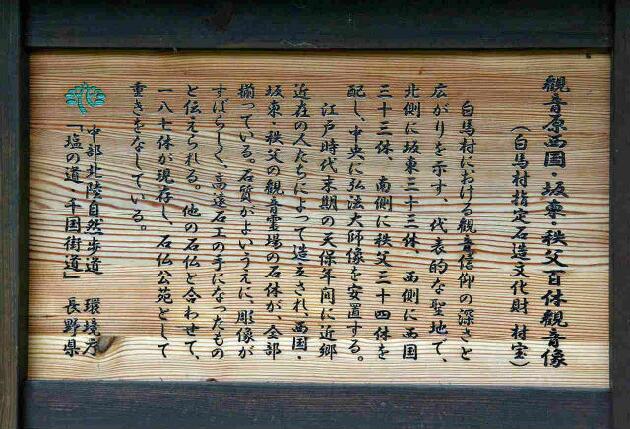 観音原西国・坂東・秩父百体観音像
（白馬村指定石造文化財 村宝）
白馬村における観音信仰の深さと
広がりを示す、代表的な聖地で、
北側に坂東三十三体、西側に西国
三十三体、南側に秩父三十四体を
配し、中央に弘法大師像を安置する。
江戸時代末期の天保年間に近郷
近在の人たちによって造立され、西国・
坂東・秩父の観音霊場の石体が、全部
揃っている。石質がよいうえに、彫像が
すばらしく、高遠石工の手になったもの
と伝えられる。他の石仏と合わせて、
一八七体が現存し、石仏公苑として
重きをなしている。
中部北陸自然歩道 環境庁
「塩の道 千国街道」 長野県